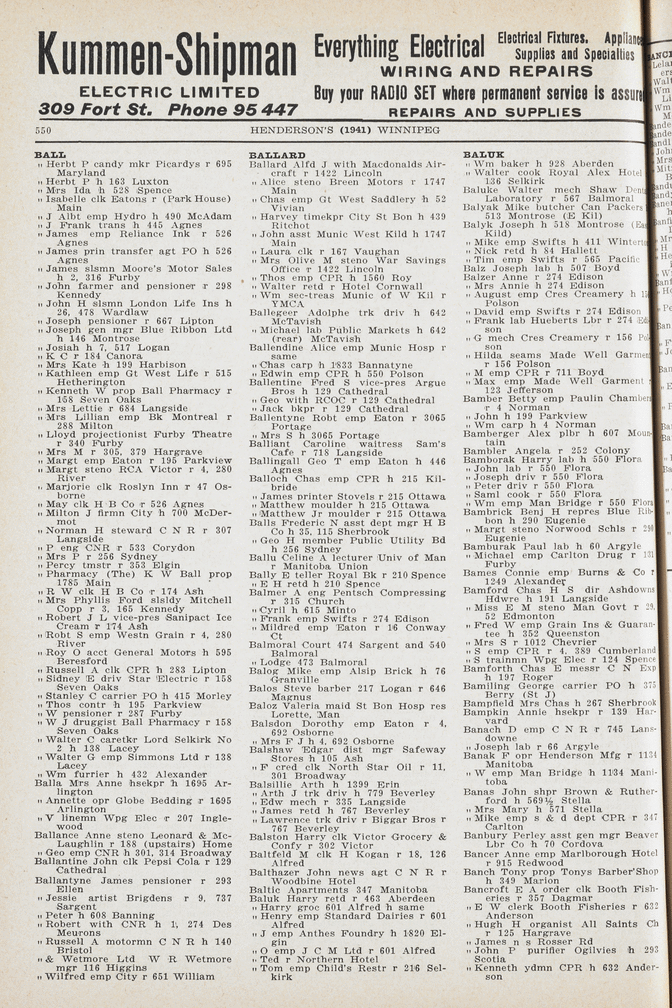 Kummen-Shipman
ELECTRIC LIMITED
309 Fort St. Phone 95 447
Everything Electrical
Electrical Fixtures,
Supplies and Specialties
WIRING AND REPAIRS
Buy your RADIO SET where permanent service is
REPAIRS AND SUPPLIES
550
HENDERSON'S (1941) WINNIPEG
BALL
" Herbt P candy mkr Picardys r 695
Maryland
" Herbt P h 163 Luxton
" Mrs Ida h 528 Spence
" Isabelle clk Eatons r (Park House)
Main
" J Albt emp Hydro h 490 McAdam
" J Frank trans h 445 Agnes
" James emp Reliance Ink r 526
Agnes
" James prin transfer agt PO h 526
Agnes
" James slsmn Moore's Motor Sales
h 2, 316 Furby
" John farmer and pensioner r 298
Kennedy
" John H slsmn London Life Ins h
26, 478 Wardlaw
" Joseph pensioner r 667 Lipton
" Joseph gen mgr Blue Ribbon Ltd
h 146 Montrose
" Josiah h 7, 517 Logan
" K C r 184 Canora
" Mrs Kate h 199 Harbison
" Kathleen emp Gt West Life r 515
Hetherington
" Kenneth W prop Ball Pharmacy r
158 Seven Oaks
" Mrs Lettie r 684 Langside
" Mrs Lillian emp Bk Montreal r
288 Milton
" Lloyd projectionist Furby Theatre
r 340 Furby
" Mrs M r 305, 379 Hargrave
" Margt emp Eaton r 195 Parkview
" Margt steno RCA Victor r 4, 280
River
" Marjorie clk Roslyn Inn r 47 Os-
borne
" May clk H B Co r 526 Agnes
" Milton J firmn City h 700 McDer-
mot
" Norman H steward C N R r 307
Langside
" P eng CNR r 533 Corydon
" Mrs P r 256 Sydney
" Percy tmstr r 353 Elgin
" Pharmacy (The) K W Ball prop
1785 Main
" R W clk H B Co r 174 Ash
" Mrs Phyllis Ford sleldy Mitchell
Copp r 3, 165 Kennedy
" Robert J L vice-pres Sanipact Ice
Cream r 174 Ash
" Robt S emp Westn Grain r 4, 280
River
" Roy O acct General Motors h 595
Beresford
" Russell A clk CPR h 283 Lipton
" Sidney E driv Star Electric r 158
Seven Oaks
" Stanley C carrier PO h 415 Morley
" Thos contr h 195 Parkview
" W pensioner r 287 Furby
" W J druggist Ball Pharmacy r 158
Seven Oaks
" Walter C caretkr Lord Selkirk No
2 h 138 Lacey
" Walter G emp Simmons Ltd r 138
Lacey
" Wm furrier h 432 Alexander
Balla Mrs Anne hsekpr h 1695 Ar-
lington
" Annette opr Globe Bedding r 1695
Arlington
" V linemn Wpg Elec r 207 Ingle-
wood
Ballance Anne steno Leonard & Mc-
Laughlin r 188 (upstairs) Home
" Geo emp CNR h 301, 314 Broadway
Ballantine John clk Pepsi Cola r 129
Cathedral
Ballantyne James pensioner r 293
Ellen
" Jessie artist Brigdens r 9, 737
Sargent
" Peter h 608 Banning
" Robert with CNR h 1, 274 Des
Meurons
" Russell A motormn C N R h 140
Bristol
" & Wetmore Ltd W R Wetmore
mgr 116 Higgins
" Wilfred emp City r 651 William
BALLARD
Ballard Alfd J with Macdonalds Air-
craft r 1422 Lincoln
" Alice steno Breen Motors r 1747
Main
" Chas emp Gt West Saddlery h 52
Vivian
" Harvey timekpr City St Bon h 439
Ritchot
" John asst Munic West Kild h 1747
Main
" Laura clk r 167 Vaughan
" Mrs Olive M steno War Savings
Office r 1422 Lincoln
" Thos emp CPR h 1560 Roy
" Walter retd r Hotel Cornwall
" Wm sec-treas Munic of W Kil r
YMCA
Ballegeer Adolphe trk driv h 642
McTavish
" Michael lab Public Markets h 642
(rear) McTavish
Ballendine Alice emp Munic Hosp r
same
" Chas carp h 1833 Bannatyne
" Edwin emp CPR h 550 Polson
Ballentine Fred S vice-pres Argue
Bros h 129 Cathedral
" Geo with RCOC r 129 Cathedral
" Jack bkpr r 129 Cathedral
Ballentyne Robt emp Eaton r 3065
Portage
" Mrs S h 3065 Portage
Balliant Caroline waitress Sam's
Cafe r 718 Langside
Ballingall Geo T emp Eaton h 446
Agnes
Balloch Chas emp CPR h 215 Kil-
bride
" James printer Stovels r 215 Ottawa
" Matthew moulder h 215 Ottawa
" Matthew Jr moulder r 215 Ottawa
Balls Frederic N asst dept mgr H B
Co h 35, 115 Sherbrook
" Geo H member Public Utility Bd
h 256 Sydney
Ballu Celine A lecturer Univ of Man
r Manitoba Union
Bally E teller Royal Bk r 210 Spence
" E H retd h 210 Spence
Balmer A eng Pentsch Compressing
r 315 Church
" Cyril h 615 Minto
" Frank emp Swifts r 274 Edison
" Mildred emp Eaton r 16 Conway
Ct
Balmoral Court 474 Sargent and 540
Balmoral
" Lodge 473 Balmoral
Balog Mike emp Alsip Brick h 76
Granville
Balos Steve barber 217 Logan r 646
Magnus
Baloz Valeria maid St Bon Hosp res
Lorette, Man
Balsdon Dorothy emp Eaton r 4,
692 Osborne
" Mrs F J h 4, 692 Osborne
Balshaw Edgar dist mgr Safeway
Stores h 105 Ash
" F cred clk North Star Oil r 11,
301 Broadway
Balsillie Arth h 1399 Erin
" Arth J trk driv h 779 Beverley
" Edw mech r 335 Langside
" James retd h 767 Beverley
" Lawrence trk driv r Biggar Bros r
767 Beverley
Balston Harry clk Victor Grocery &
Confy r 302 Victor
Baltfeld M clk H Kogan r 18, 126
Alfred
Balthazer John news agt C N R r
Woodbine Hotel
Baltic Apartments 347 Manitoba
Baluk Harry retd r 463 Aberdeen
" Harry groc 601 Alfred h same
" Henry emp Standard Dairies r 601
Alfred
" J emp Anthes Foundry h 1820 El-
gin
" O emp J C M Ltd r 601 Alfred
" Ted r Northern Hotel
" Tom emp Child's Restr r 216 Sel-
kirk
BALUK
" Wm baker h 928 Aberden
" Walter cook Royal Alex Hotel
136 Selkirk
Baluke Walter mech Shaw
Laboratory r 567 Balmoral
Balyak Mike butcher Can Packers
513 Montrose (E Kil)
Balyk Joseph h 518 Montrose
Kild)
" Mike emp Swifts h 411
" Nick retd h 84 Hallett
" Tim emp Swifts r 565 Pacific
Balz Joseph lab h 507 Boyd
Balzer Anne r 274 Edison
" Mrs Annie h 274 Edison
" August emp Cres Creamery h
Polson
" David emp Swifts r 274 Edison
" Frank lab Hueberts Lbr r 274
son
" G mech Cres Creamery r 156
son
" Hilda seams Made Well
r 156 Polson
" M emp CPR r 711 Boyd
" Max emp Made Well Garment
123 Jefferson
Bamber Betty emp Paulin
r 4 Norman
" John h 199 Parkview
" Wm carp h 4 Norman
Bamberger Alex plbr h 607
tain
Bambler Angela r 252 Colony
Bamborak Harry lab h 550 Flora
" John lab r 550 Flora
" Joseph driv r 550 Flora
" Peter driv r 550 Flora
" Saml cook r 550 Flora
" Wm emp Man Bridge r 550 Flora
Bambrick Benj H repres Blue Rib-
bon h 290 Eugenie
" Margt steno Norwood Schls r
Eugenie
Bamburak Paul lab h 60 Argyle
" Michael emp Carlton Drug r
Furby
Bames Connie emp Burns & Co r
1249 Alexander
Bamford Chas H S dir Ashdowns
Hdwre h 191 Langside
" Miss E M steno Man Govt r 29,
52 Edmonton
" Fred W emp Grain Ins & Guaran-
tee h 352 Queenston
" Mrs S r 1012 Chevrier
" S emp CPR r 4, 389 Cumberland
" S trainmn Wpg Elec r 124 Spence
Bamforth Chas E messr C N Exp
h 197 Roger
Bamiling George carrier PO h 375
Berry (St J)
Bampfield Mrs Chas h 267 Sherbrook
Bampkin Annie hsekpr r 139 Har-
vard
Banach D emp C N R r 745 Lans-
downe
" Joseph lab r 66 Argyle
Banak F opr Henderson Mfg r 1134
Manitoba
" W emp Man Bridge h 1134 Mani-
toba
Banas John shpr Brown & Ruther-
ford h 569½ Stella
" Mrs Mary h 571 Stella
" Mike emp s & d dept CPR r 347
Carlton
Banbury Perley asst gen mgr Beaver
Lbr Co h 70 Cordova
Bancer Anne emp Marlborough Hotel
r 915 Redwood
Banch Tony prop Tonys Barber Shop
h 349 Marion
Bancroft E A order clk Booth Fish-
eries r 357 Dagmar
" E W clerk Booth Fisheries r 632
Anderson
" Hugh H organist All Saints Ch
r 125 Hargrave
" James n s Rosser Rd
" John P purifier Ogilvies h 293
Scotia
" Kenneth ydmn CPR h 632 Ander-
son